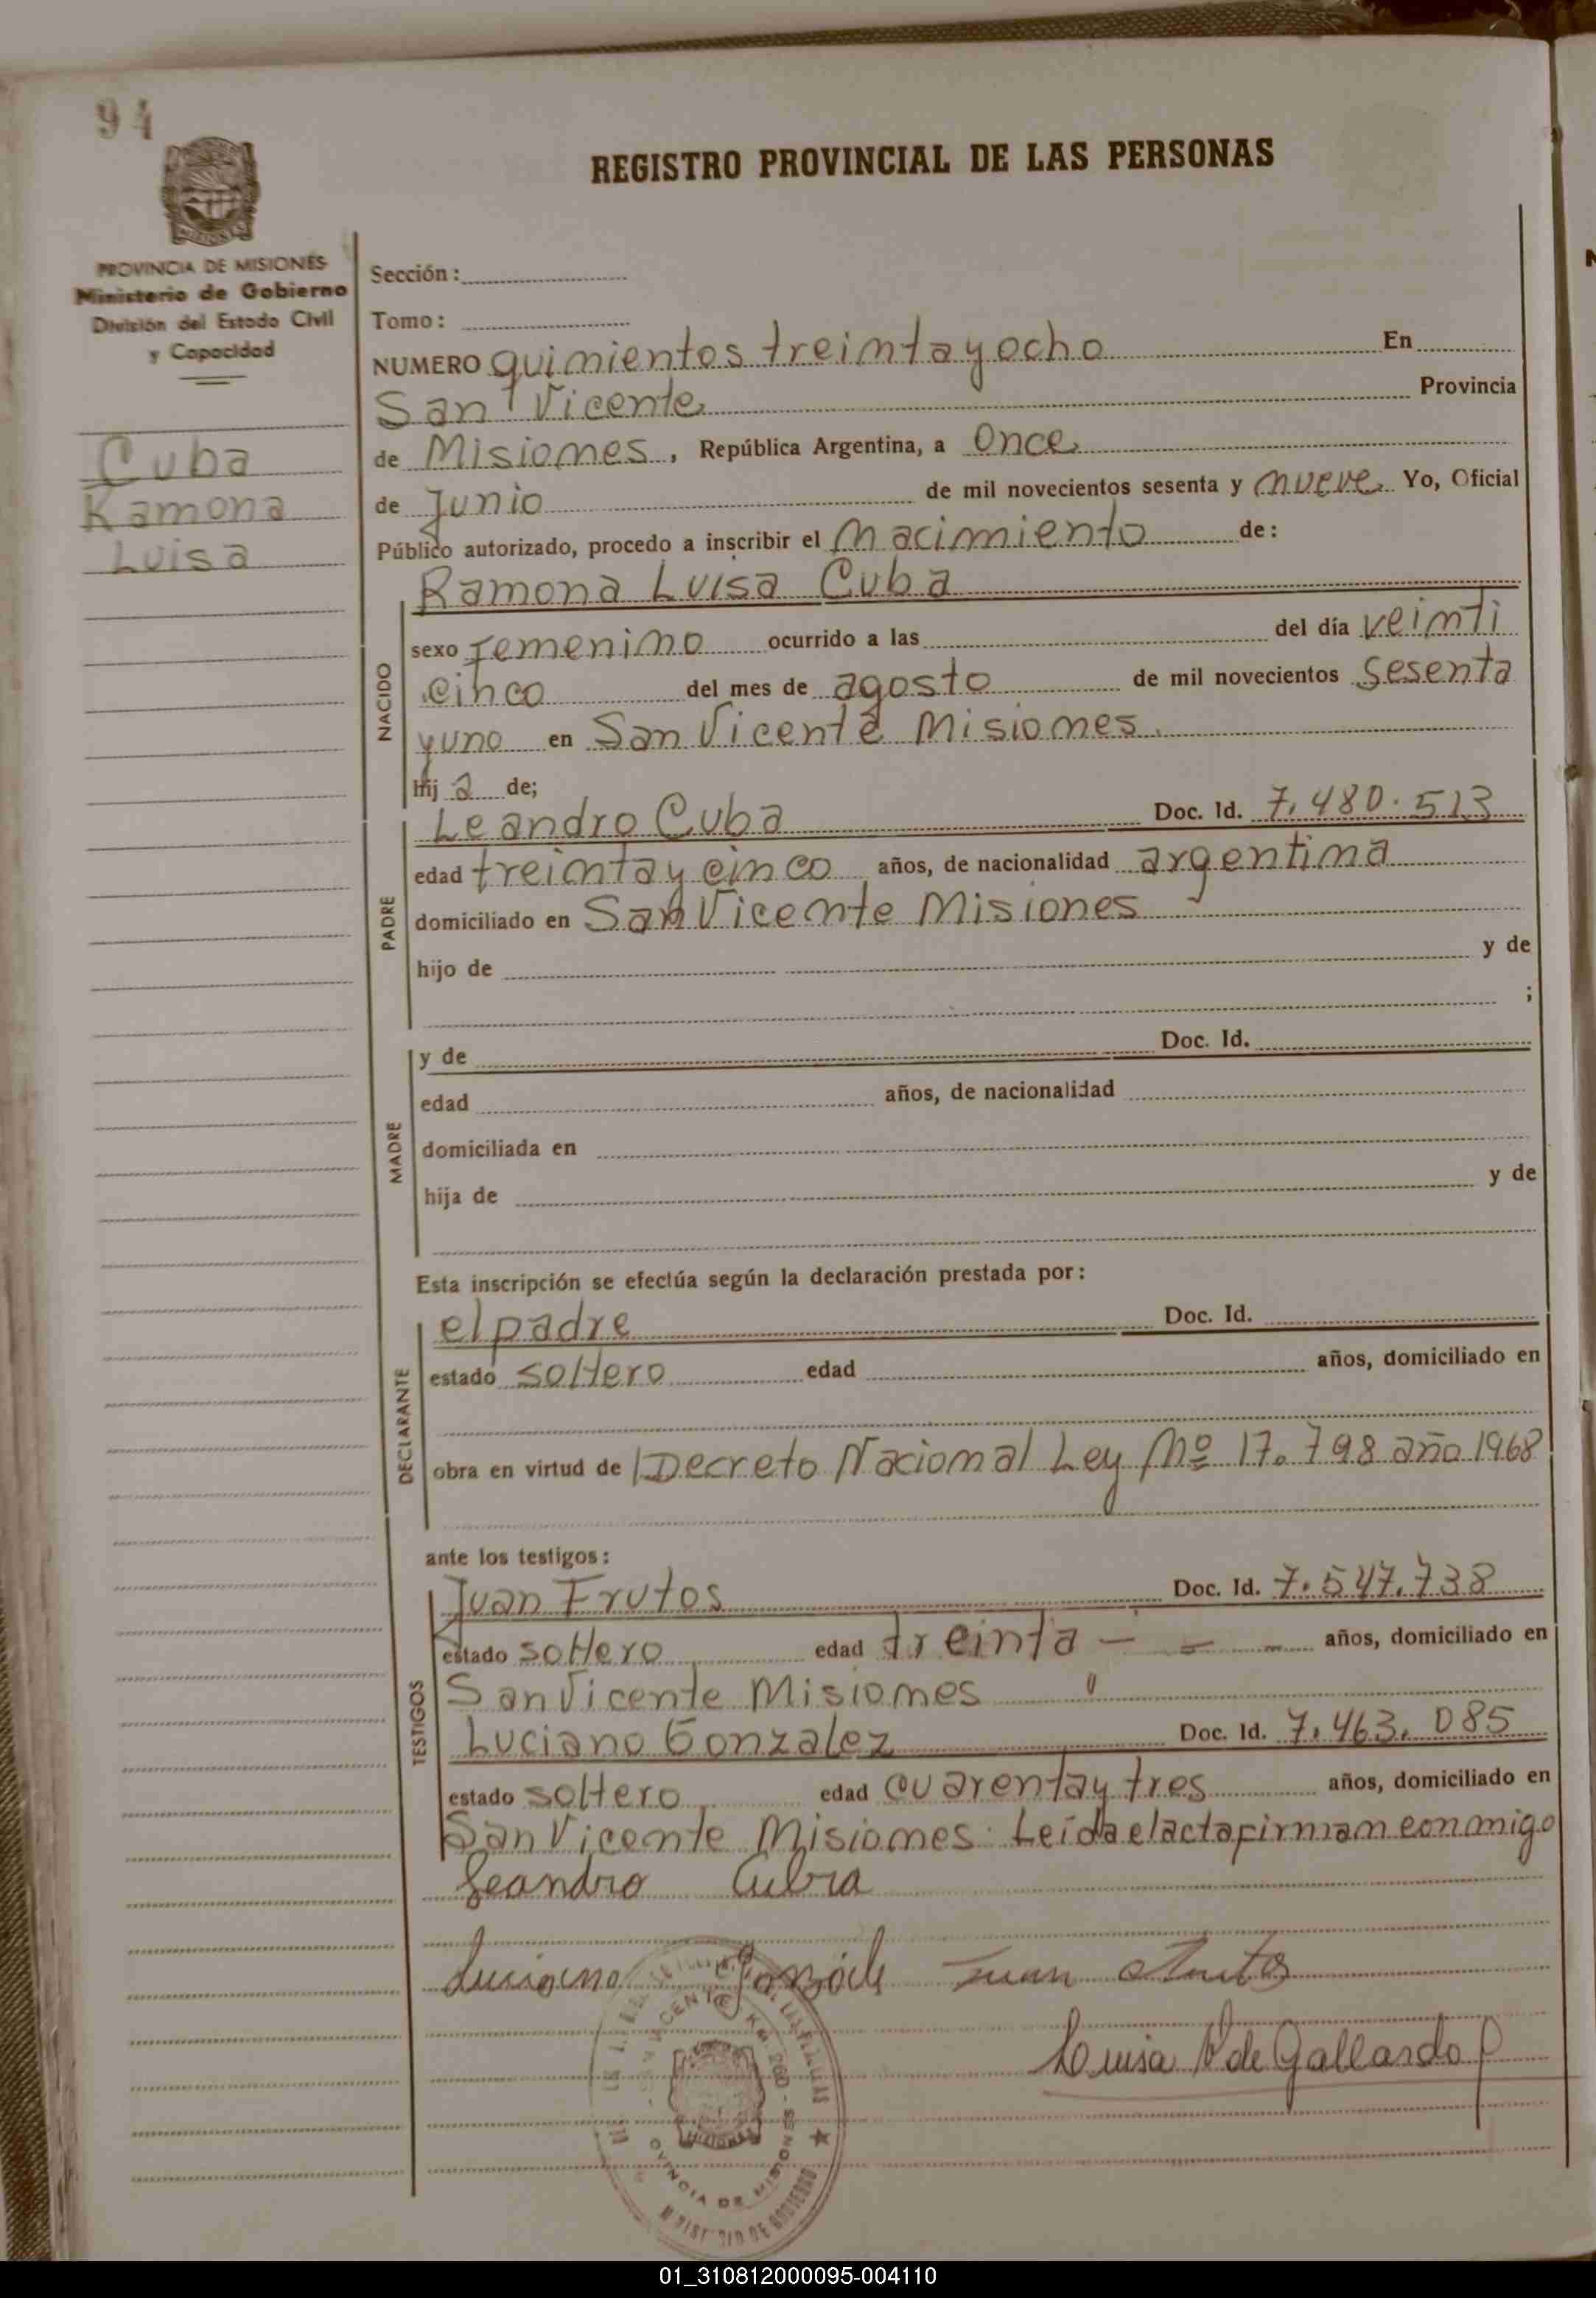 94
REGISTRO PROVINCIAL DE LAS PERSONAS
PROVINCIA DE MISIONES
Ministerio de Gobierno
División del Estado Civil
y Capacidad
Cuba
Ramona
Luisa
Sección:
Tomo:
NUMERO quimientos treimta y ocho En
San Vicente Provincia
de Misiomes, República Argentina, a Once
de Junio de mil novecientos sesenta y nueve Yo, Oficial
Público autorizado, procedo a inscribir el nacimiento de:
Ramona Luisa Cuba
NACIDO
sexo femenimo ocurrido a las del día veimti
cinco del mes de agosto de mil novecientos sesenta
y uno en San Vicente Misiomes.
hij a de;
PADRE
Leandro Cuba Doc. Id. 7.480.513
edad treimta y cinco años, de nacionalidad argentima
domiciliado en San Vicemte Misiones
hijo de y de
;
MADRE
y de Doc. Id.
edad años, de nacionalidad
domiciliada en
hija de y de
Esta inscripción se efectúa según la declaración prestada por:
DECLARANTE
el padre Doc. Id.
estado soltero edad años, domiciliado en
obra en virtud de Decreto Naciomal Ley Nº 17.798 año 1968
ante los testigos:
TESTIGOS
Juan Frutos Doc. Id. 7.547.738
estado soltero edad treinta - = - años, domiciliado en
San Vicente Misiomes "
Luciano Gonzalez Doc. Id. 7.463.085
estado soltero edad cuarenta y tres años, domiciliado en
San Vicemte Misiomes. Leída el acta firman conmigo
Leandro Cuba
Luciano Gonzale Juan Frutos
Luisa de Gallardo
SAN VICENTE KM. 260 -
MISIONES
PROVINCIA DE MISIONES
MINISTERIO DE GOBIERNO
01_310812000095-004110